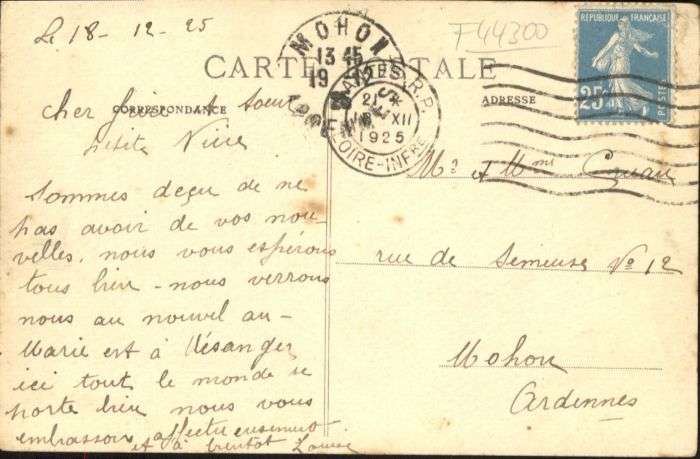 Le 18-12-25
F44300
REPUBLIQUE FRANÇAISE
25c
POSTES
MOHON
13 45
19
NANTES R.P.
21
XII
1925
LOIRE-INFRE
CARTE POSTALE
CORRESPONDANCE
ADRESSE
Cher frère et Soeur
petite Nièce
Sommes deçu de ne
pas avoir de vos nou-
velles, nous vous espérons
tous bien - nous verrons
nous au nouvel an -
Marie est à Mésanger
ici tout le monde se
porte bien nous vous
embrassons affectueusement
et à bientot Louise
Mr et Mme
rue de Semeuse No 12
Mohon
Ardennes